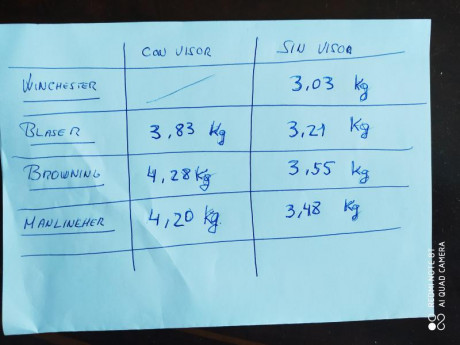 CON VISOR SIN VISOR
WINCHESTER 3,03 Kg
BLASER 3,83 Kg 3,21 Kg
BROWNING 4,28 Kg 3,55 Kg
MANLINEHER 4,20 Kg 3,48 Kg
AI QUAD CAMERA